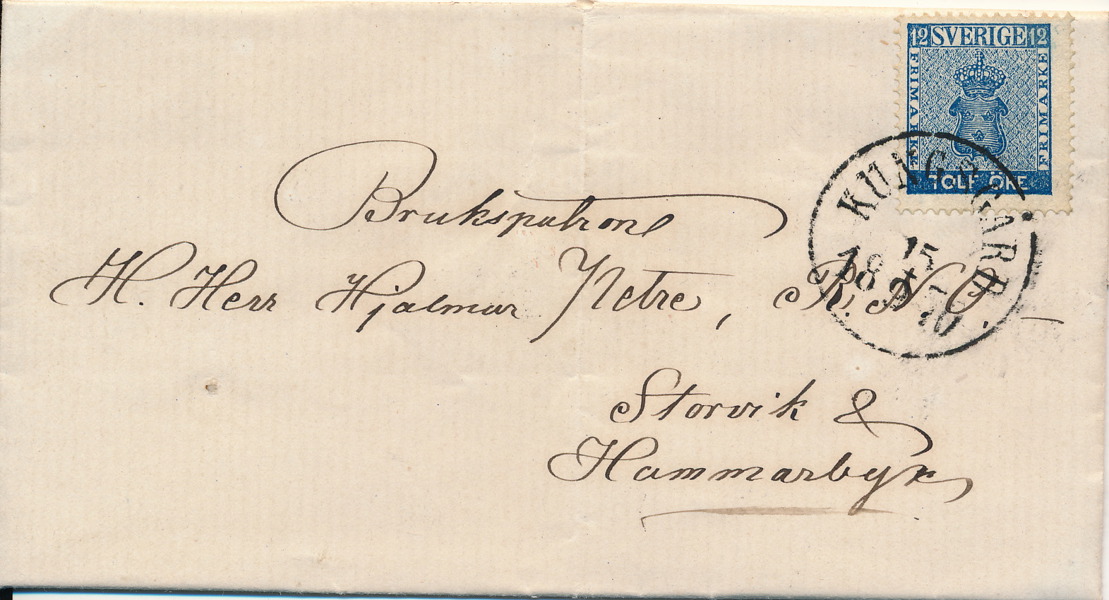 12 SVERIGE 12
FRIMARKE
FRIMARKE
TOLF ÖRE
KUNGSGÅRD
15
18
70
Brukspatron
H. Herr Hjalmar Petre, R. N. O.
Storvik &
Hammarby